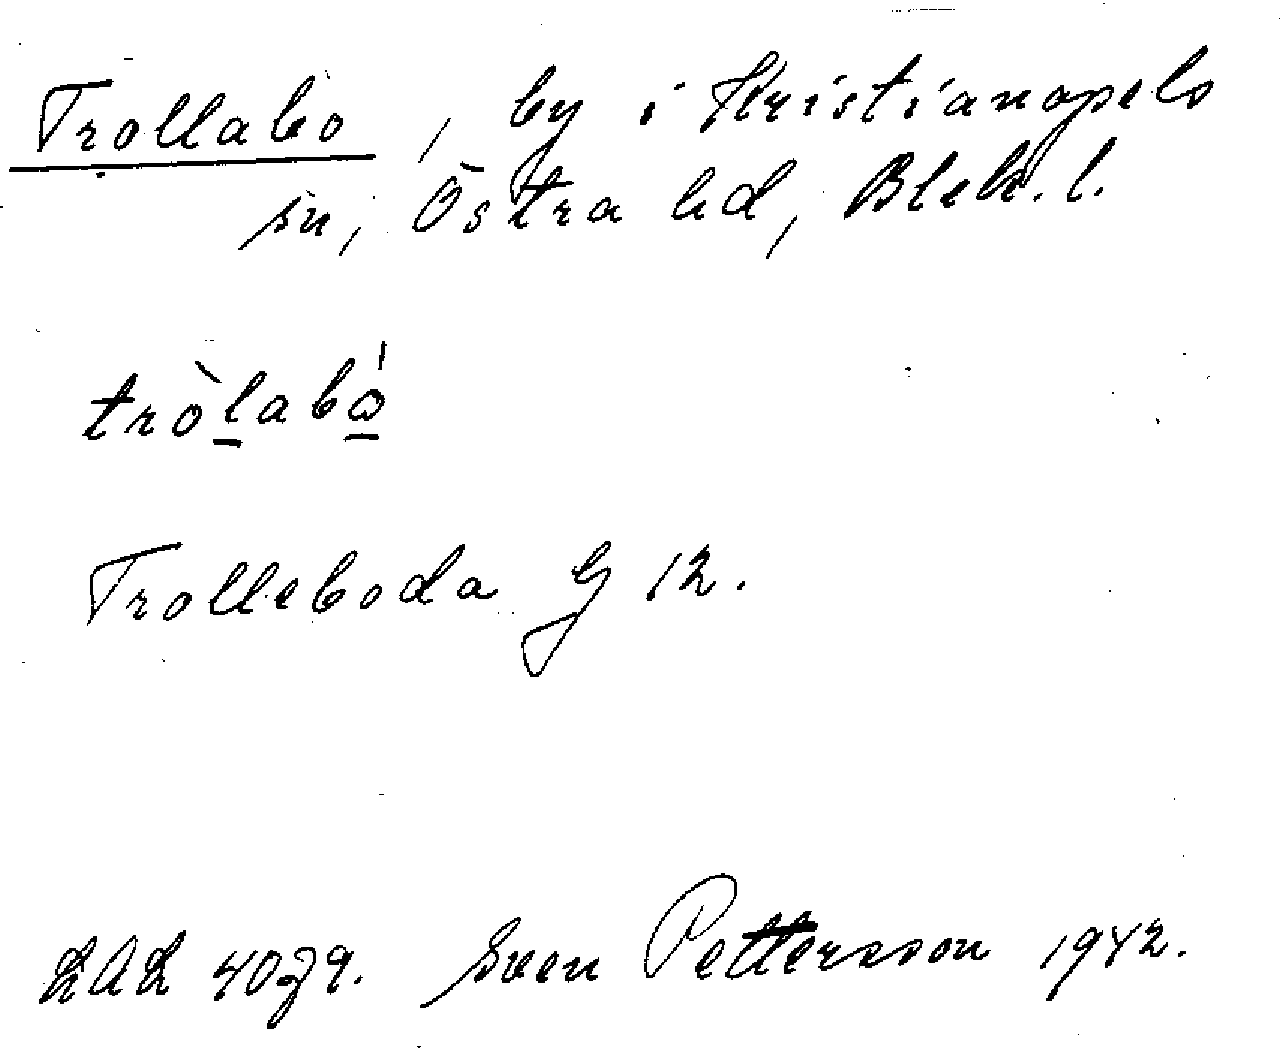 Trollabo, by i Kristianopels
sn, Östra hd, Blek. l.
tròlabó
Trolleboda G 12.
LAL 4079. Sven Pettersson 1942.